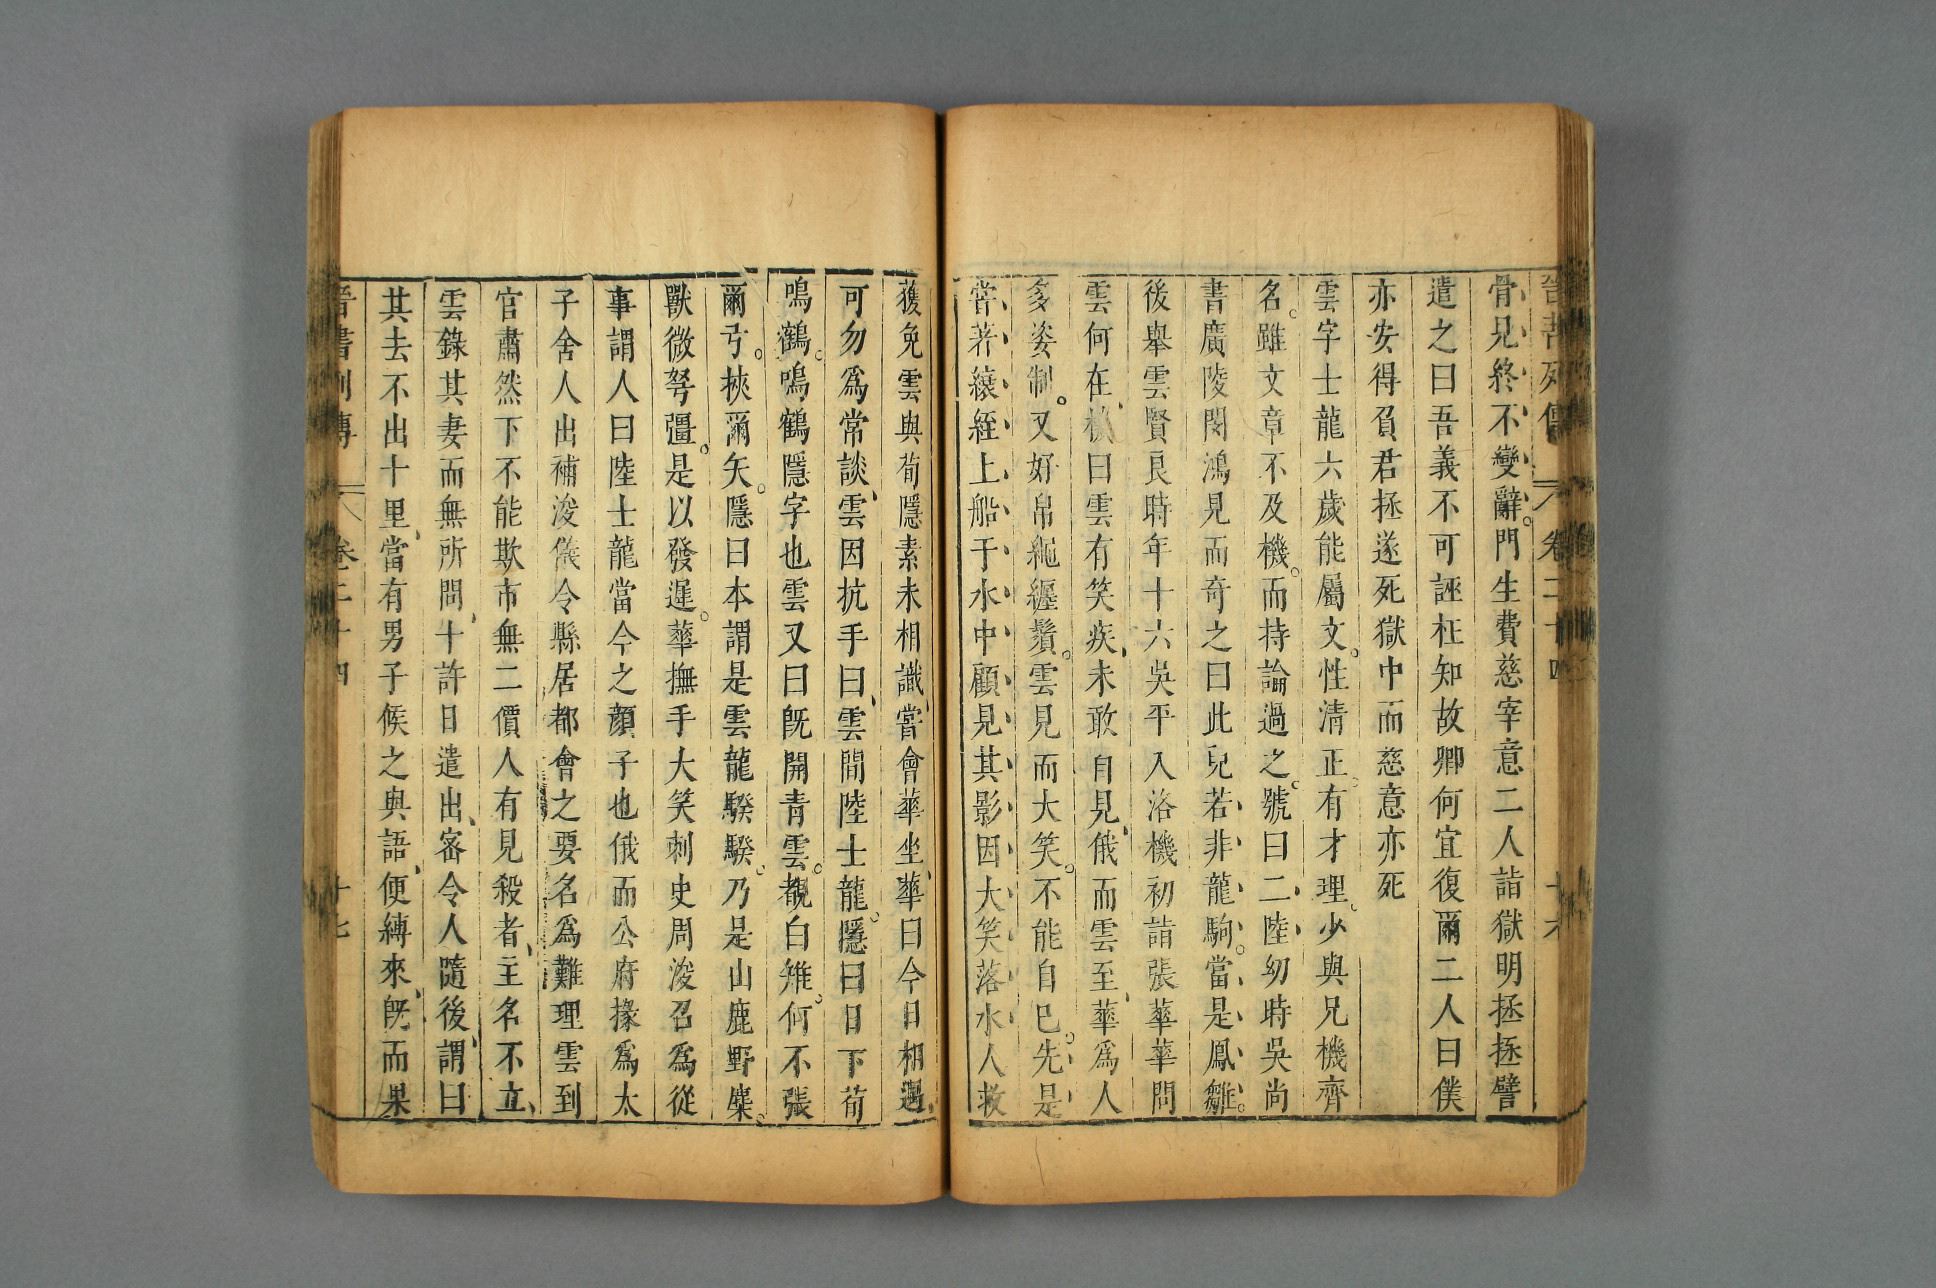 晉書列傳 卷二十四 十六
骨見終不變辭門生費慈宰意二人詣獄明拯拯譬
遣之曰吾義不可誣枉知故卿何宜復爾二人曰僕
亦安得負君拯遂死獄中而慈意亦死
雲字士龍六歲能屬文性清正有才理少與兄機齊
名雖文章不及機而持論過之號曰二陸幼時吳尚
書廣陵閔鴻見而奇之曰此兒若非龍駒當是鳳雛
後舉雲賢良時年十六吳平入洛機初詣張華華問
雲何在機曰雲有笑疾未敢自見俄而雲至華為人
多姿制又好帛繩纏鬚雲見而大笑不能自已先是
嘗著縗絰上船于水中顧見其影因大笑落水人救
獲免雲與荀隱素未相識嘗會華坐華曰今日相遇
可勿為常談雲因抗手曰雲間陸士龍隱曰日下荀
鳴鶴鳴鶴隱字也雲又曰旣開青雲覩白雉何不張
爾弓挾爾矢隱曰本謂是雲龍騤騤乃是山鹿野麋
獸微弩彊是以發遲華撫手大笑刺史周浚召為從
事謂人曰陸士龍當今之顏子也俄而公府掾為太
子舍人出補浚儀令縣居都會之要名為難理雲到
官肅然下不能欺市無二價人有見殺者主名不立
雲錄其妻而無所問十許日遣出密令人隨後謂曰
其去不出十里當有男子候之與語便縛來旣而果
晉書列傳 卷二十四 十七